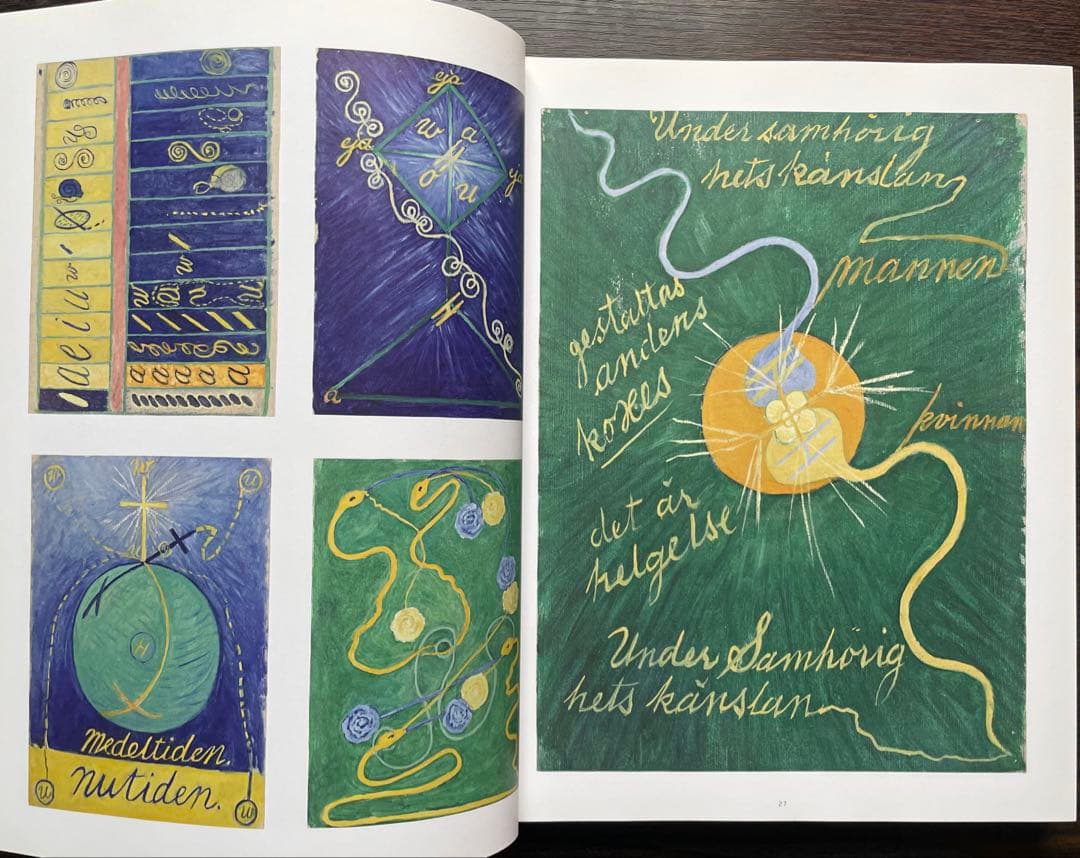 a e i u w
a a a a a
eja
w a
eja
H
o u
H
a
w
w u
u
H
Medeltiden.
nutiden.
u w
Under samhörig
hets känslan
mannen
gestaltas
andens
kvinnan
det är
helgelse
Under Samhörig
hets känslan
27